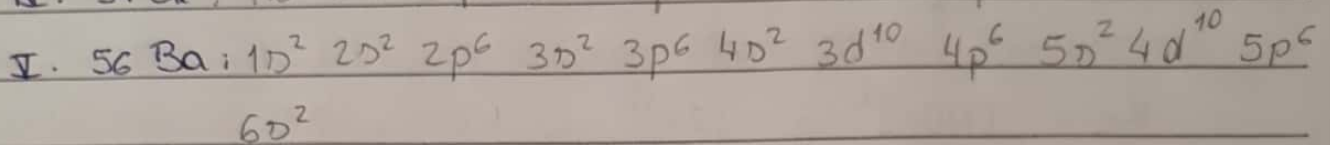 V. 56 Ba: 1s² 2s² 2p⁶ 3s² 3p⁶ 4s² 3d¹⁰ 4p⁶ 5s² 4d¹⁰ 5p⁶
6s²